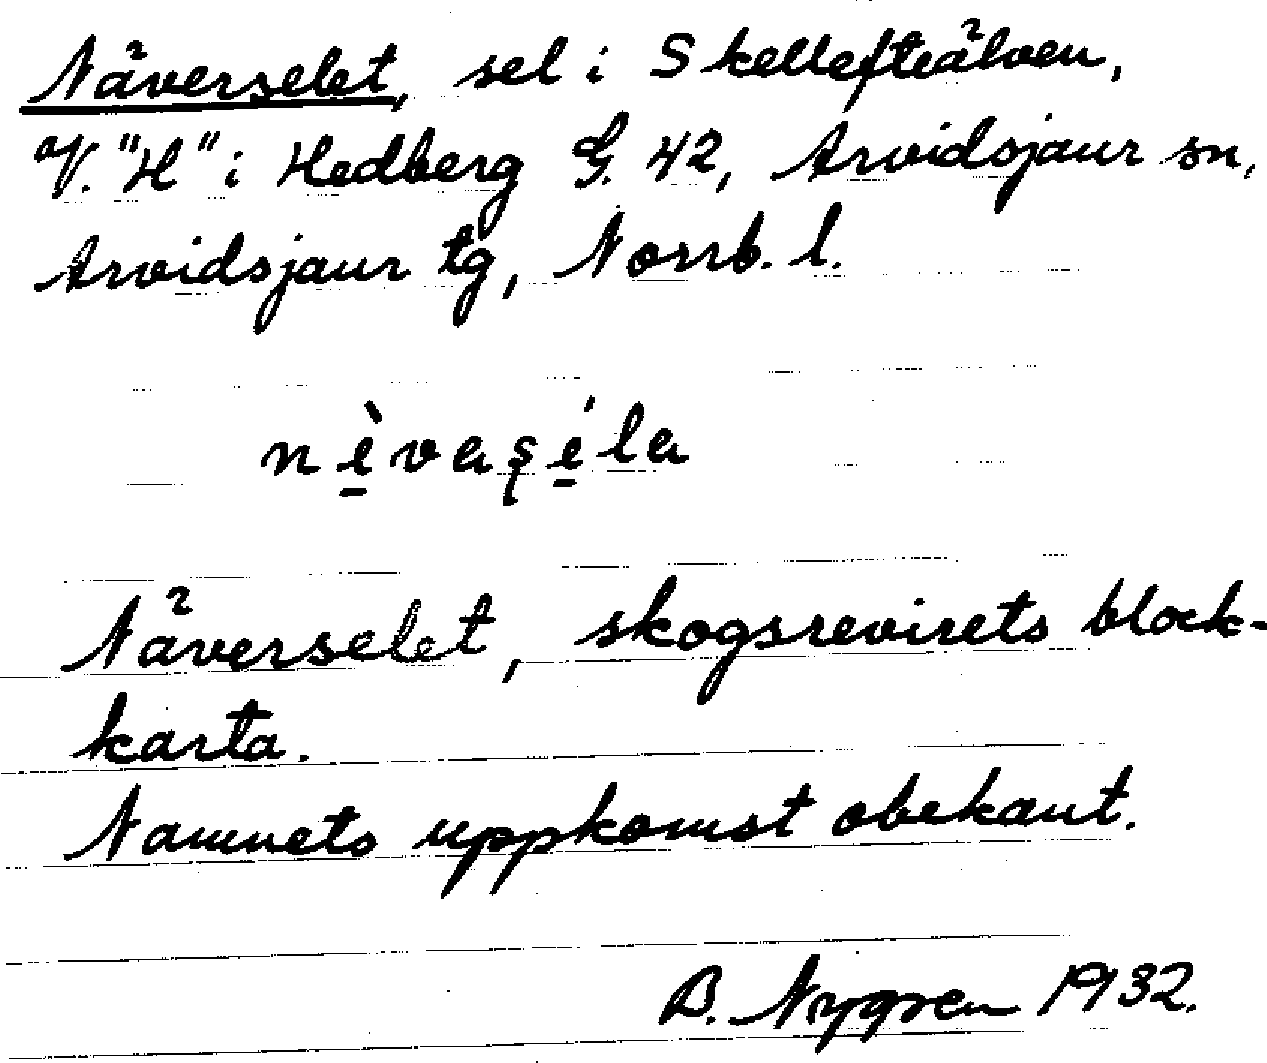 Näverselet, sel i Skellefteälven,
V. "H" i Hedberg G. 42, Arvidsjaur sn,
Arvidsjaur tg, Norrb. l.
nę̀vaşę́la
Näverselet, skogsrevirets block-
karta.
Namnets uppkomst obekant.
B. Nygren 1932.